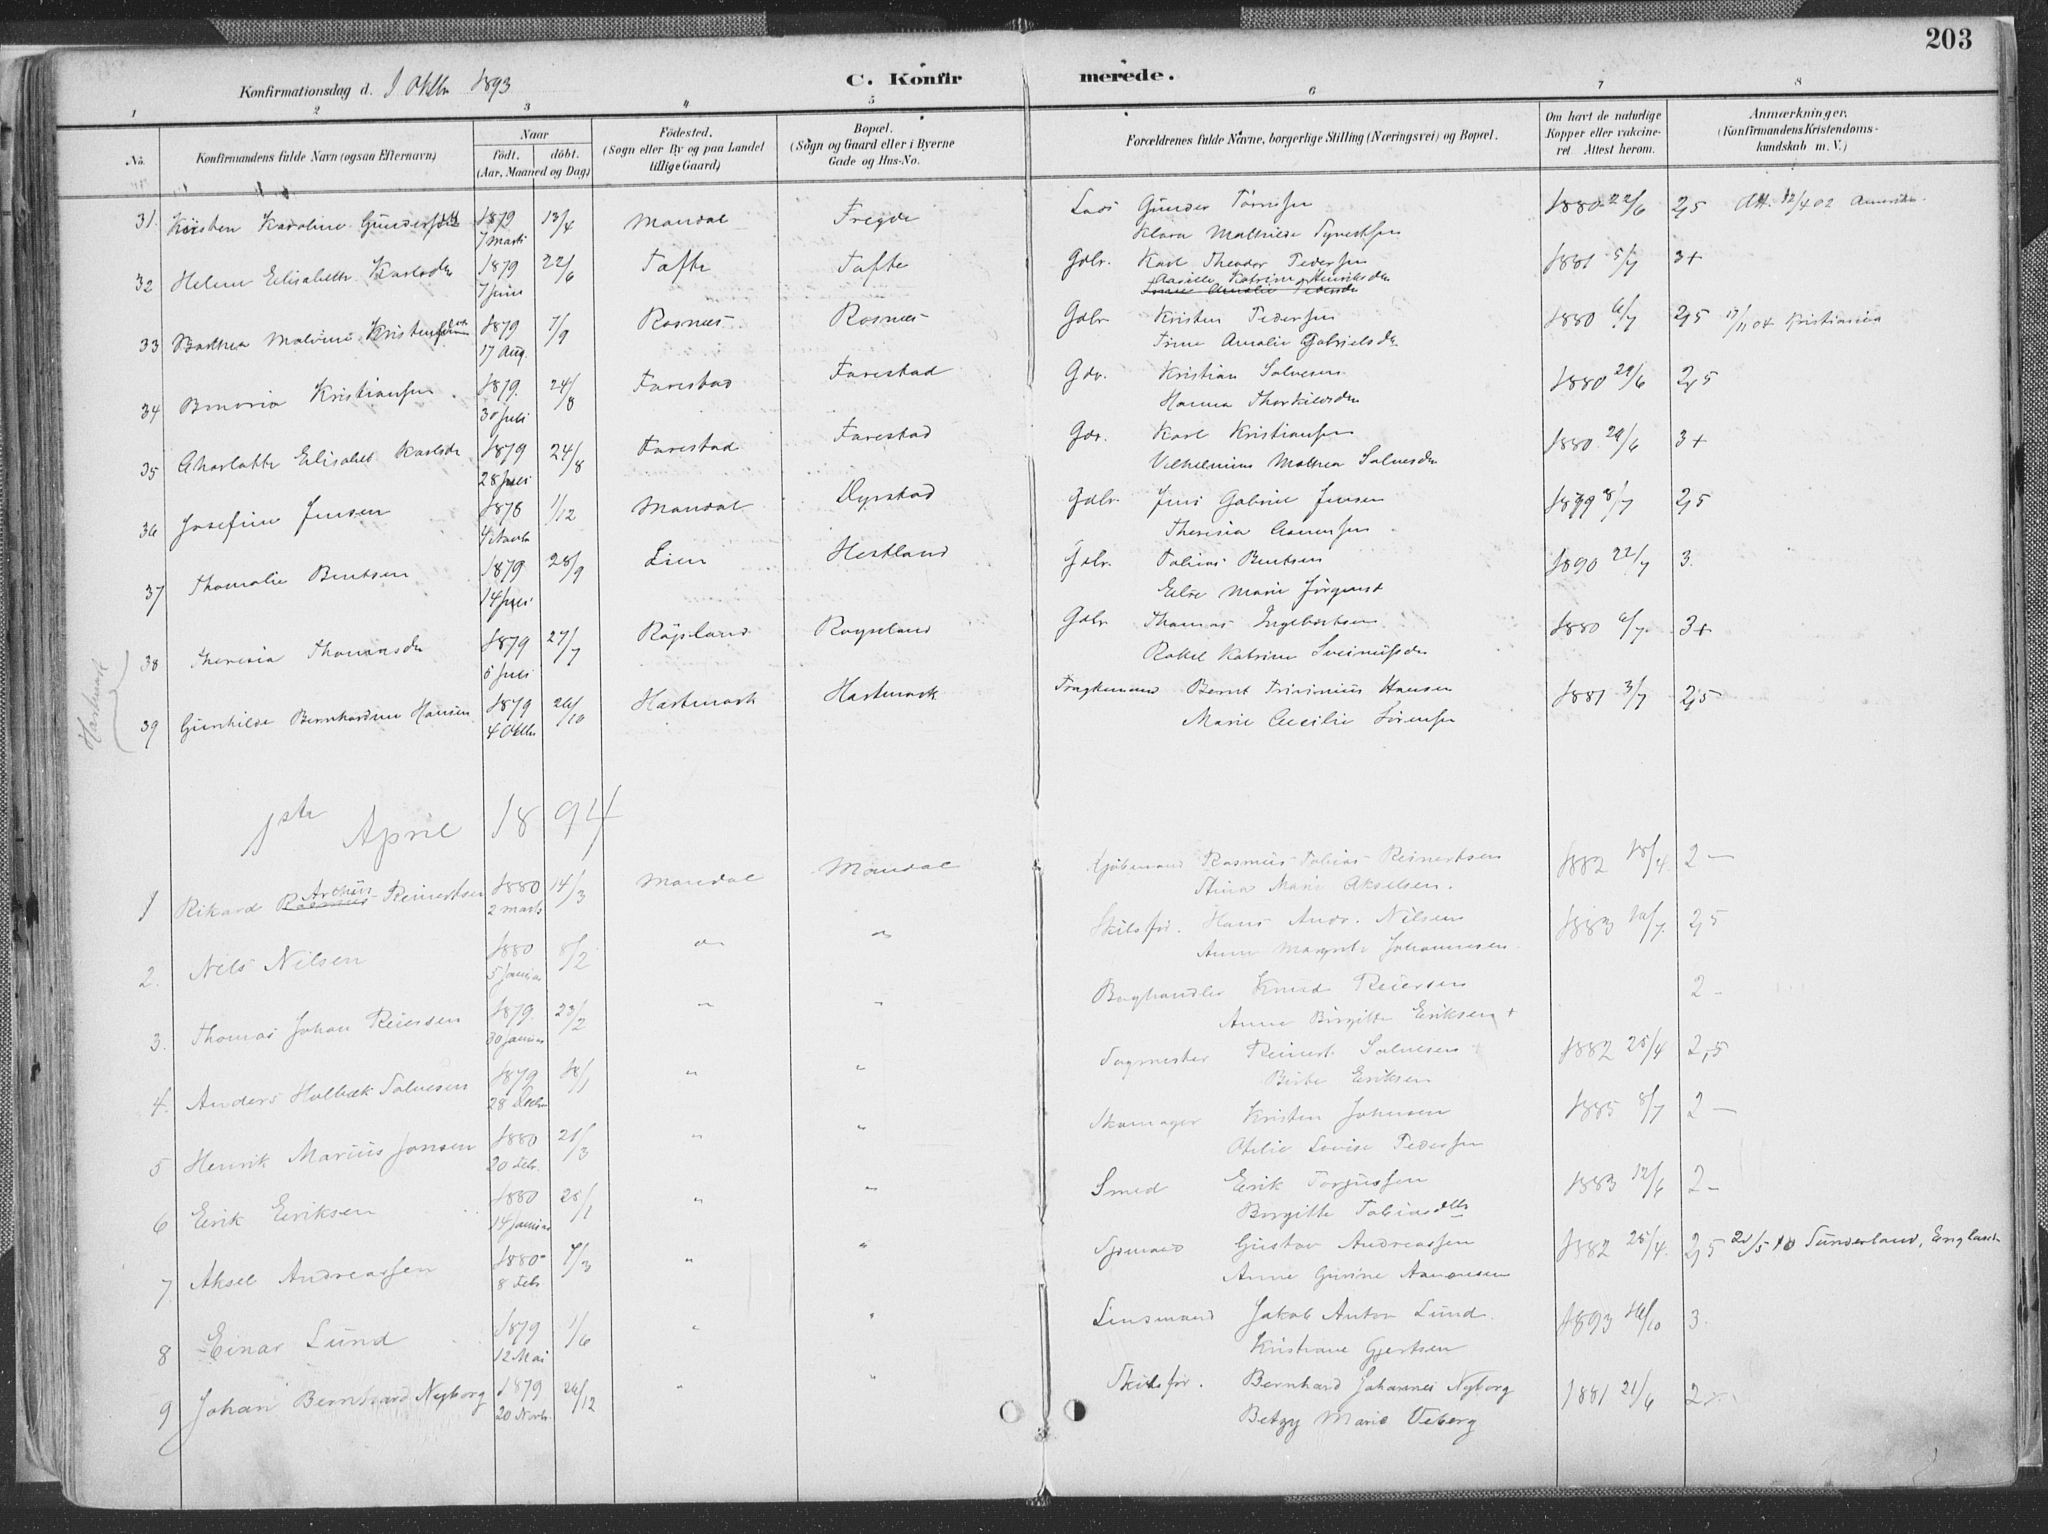 203
Konfirmationsdag d. 1 Oktbr 1893
C. Konfir merede.
1 2 3 4 5 6 7 8
No.
Konfirmandens fulde Navn (ogsaa Efternavn)
Naar
födt. döbt.
(Aar, Maaned og Dag)
Födested.
(Sogn eller By og paa Landet
tillige Gaard)
Bopæl.
(Sogn og Gaard eller i Byerne
Gade og Hus-No.
Forældrenes fulde Navne, borgerlige Stilling (Næringsvei) og Bopæl.
Om havt de naturlige
Kopper eller vakcine-
ret Attest herom.
Anmærkninger.
(Konfirmandens Kristendoms-
kundskab m. V.)
31. Kirsten Karoline Gundersen 1879 13/4 Mandal Fregde Lods Gunder Tönnesen 1880 22/6 2,5 Att. 12/4 02 Amerika
7 Marts Klara Mathilde Syvertsen
32 Helene Elisabeth Karlsdr 1879 22/6 Tofte Tofte Gdbr. Karl Theodor Pedersen 1881 5/7 3+
7 Juni Katrine Henriksdr
33 Bathea Malvine Kristensen 1879 7/9 Rosnæs Rosnæs Gdbr Kristen Pedersen 1880 6/7 2,5 17/11 04 Kristiania
17 Aug. Trine Amalie Gabrielsdr
34 Bmoria Kristiansen 1879. 24/8 Farestad Farestad Gdr. Kristian Salvesen 1880 29/6 2,5
30 Juli Hanna Thorkildsdr
35 Charlotte Elisabet Karlsdr 1879 24/8 Farestad Farestad Gdr. Karl Kristiansen 1880. 29/6 3+
28 Juli Vilhelmine Mathea Salvesdr
36 Josefine Jensen 1878 1/12 Mandal Dyrstad Gdbr. Jens Gabriel Jensen 1879 8/7 2,5
Theresia Aanensen
37 Thomalie Bentsen 1879 28/9 Lien Hesland Gdbr. Tobias Bentsen 1890 22/7 3.
14 Juli Elre Marie Jörgensd
38 Theresia Thomasdr 1879 27/7 Röjsland Royseland Gdbr Thomas Ingebretsen 1880 6/7 3+
5 Juli Rakel Katrine Sveinusdr
Hartmark
39 Gunhilde Bernhardine Hansen 1879 26/10 Hartmark Hartmark Bernt Trinius Hansen 1881 3/7 2,5
4 Oktbr Marie Cecilie Sörensen
1ste April 1894
1 Rikard Arthur Reinertsen 1880 14/3 Mandal Mandal Kjöbmand Rasmus Tobias Reinertsen 1882 18/4. 2 —
2 Marts Stina Marie Akselsen.
2. Nils Nilsen 1880 8/2 do do Skibsför. Hans Andr. Nilsen 1883 10/7. 2,5
5 Januar Anne Margrete Johannesen
3. Thomas Johan Reiersen 1879. 23/2 " " Boghandler Knud Reiersen 2 -
30 Januar Anne Birgitte Eriksen +
4. Anders Holbæk Salvesen 1879 18/1 " " Tagmester Reinert Salvesen 1882 25/4 2,5
28 Decbr Birte Eriksen
5 Henrik Marius Jonsen 1880 21/3 " " Skomager Kristen Johnsen 1885 8/7 2 —
20 Febr. Otelie Lovise Pedersen
6 Erik Eriksen 1880 25/1 " " Smed Erik Torjussen 1883 12/6 2 -
14 Januar Birgitte Tobiasdtr
7 Aksel Andreassen 1880 7/3 " " Sjömand Gustav Andreassen 1882 25/4. 2,5 21/5 10 Sunderland, England
8 Febr Anne Gurine Aanonsen
8 Einar Lund 1879 1/6 " " Lensmand Jakob Anton Lund. 1893 16/10 3.
12 Mai Kristiane Gjertsen
9 Johan Bernhard Nyborg 1879 26/12 " " Skibsför. Bernhard Johannes Nyborg 1881 21/6 2
20 Novbr. Betzy Marie Veberg